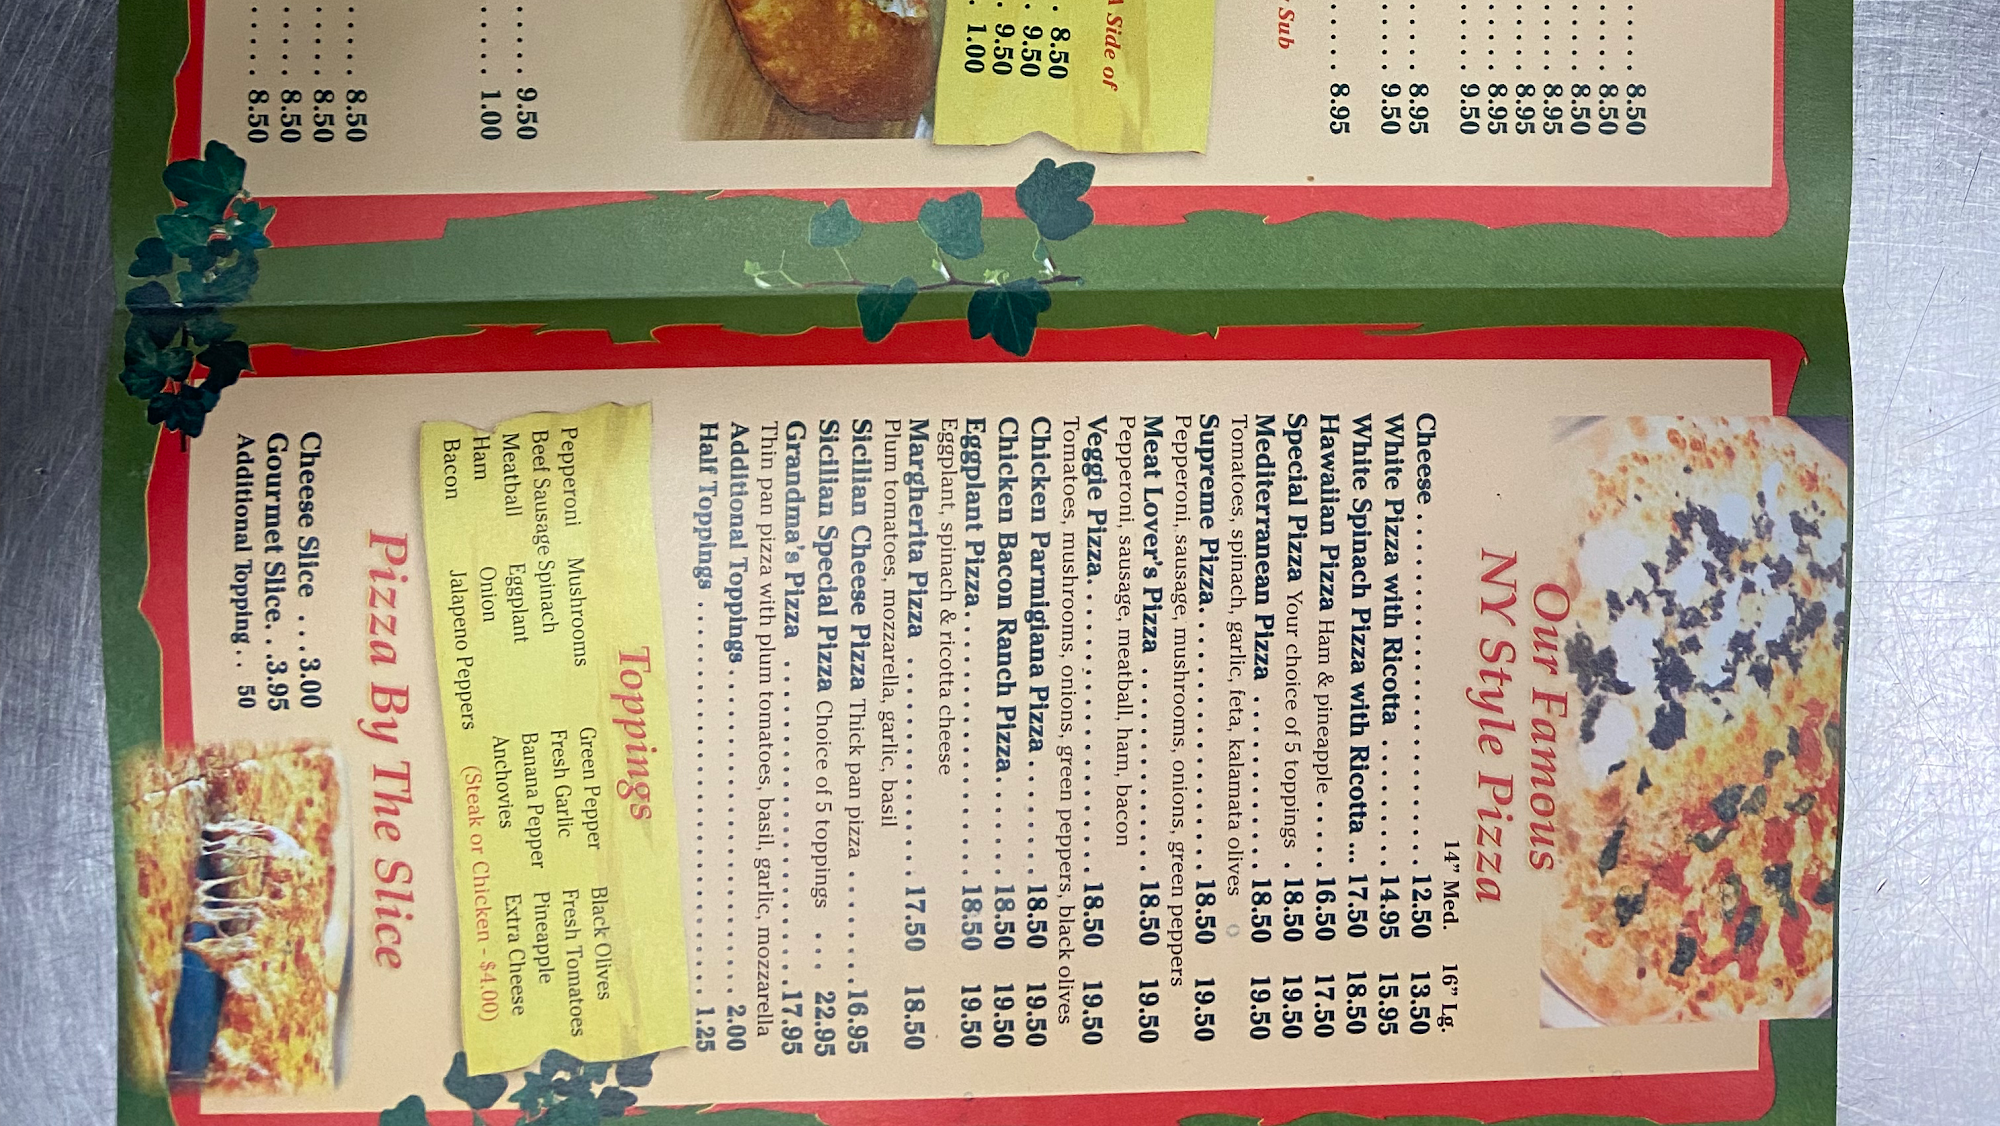 . . . . . . 8.50
. . . . . . 8.50
. . . . . . 8.50
. . . . . . 8.95
. . . . . . 8.95
. . . . . . 8.95
. . . . . . 9.50
. . . . . 8.95
. . . . . 9.50
Sub
. . . . . 8.95
A Side of
. 8.50
. 9.50
. 9.50
. 1.00
. . . . . 9.50
. . . . . 1.00
. . . . . 8.50
. . . . . 8.50
. . . . . 8.50
. . . . . 8.50
Our Famous
NY Style Pizza
14” Med. 16” Lg.
Cheese . . . . . . . . . . . . . . . . . . . . 12.50 13.50
White Pizza with Ricotta . . . . . . . . 14.95 15.95
White Spinach Pizza with Ricotta ... 17.50 18.50
Hawaiian Pizza Ham & pineapple . . . . . 16.50 17.50
Special Pizza Your choice of 5 toppings . 18.50 19.50
Mediterranean Pizza . . . . . . . . . . 18.50 19.50
Tomatoes, spinach, garlic, feta, kalamata olives
Supreme Pizza. . . . . . . . . . . . . . . . 18.50 19.50
Pepperoni, sausage, mushrooms, onions, green peppers
Meat Lover's Pizza . . . . . . . . . . . . 18.50 19.50
Pepperoni, sausage, meatball, ham, bacon
Veggie Pizza. . . . . . . . . . . . . . . . . 18.50 19.50
Tomatoes, mushrooms, onions, green peppers, black olives
Chicken Parmigiana Pizza . . . . . . . 18.50 19.50
Chicken Bacon Ranch Pizza. . . . . . 18.50 19.50
Eggplant Pizza. . . . . . . . . . . . . . . 18.50 19.50
Eggplant, spinach & ricotta cheese
Margherita Pizza . . . . . . . . . . . . 17.50 18.50
Plum tomatoes, mozzarella, garlic, basil
Sicilian Cheese Pizza Thick pan pizza . . . . . . . 16.95
Sicilian Special Pizza Choice of 5 toppings . . . 22.95
Grandma's Pizza . . . . . . . . . . . . . . . . . . . . 17.95
Thin pan pizza with plum tomatoes, basil, garlic, mozzarella
Additional Toppings . . . . . . . . . . . . . . . . . . 2.00
Half Toppings . . . . . . . . . . . . . . . . . . . . . . . 1.25
Toppings
Pepperoni Mushrooms Green Pepper Black Olives
Beef Sausage Spinach Fresh Garlic Fresh Tomatoes
Meatball Eggplant Banana Pepper Pineapple
Ham Onion Anchovies Extra Cheese
Bacon Jalapeno Peppers (Steak or Chicken - $4.00)
Pizza By The Slice
Cheese Slice . . . 3.00
Gourmet Slice. . .3.95
Additional Topping . . 50